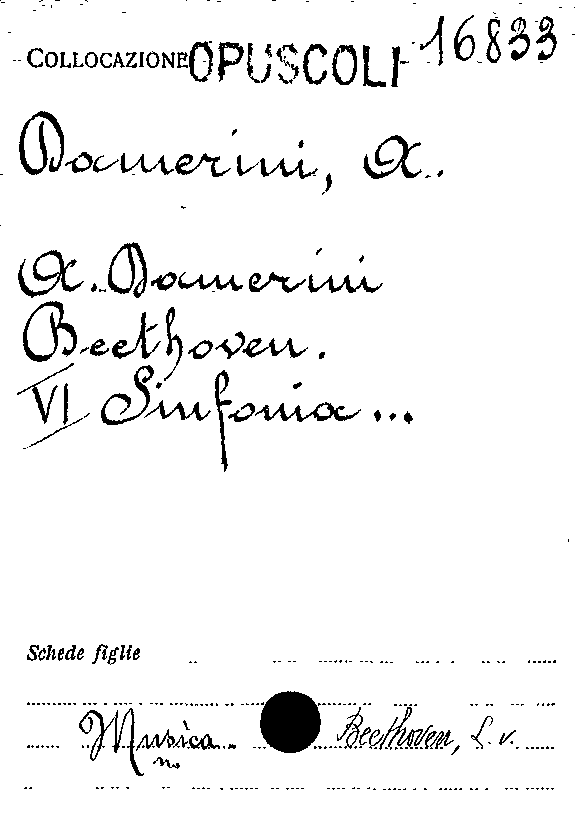 COLLOCAZIONE OPUSCOLI 16833
Damerini, A.
A. Damerini
Beethoven.
VI Sinfonia...
Schede figlie
Musica Beethoven, L. v.